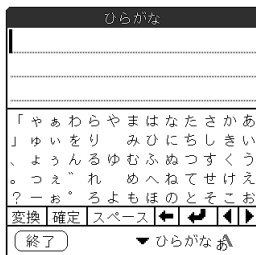 ひらがな
「 ゃ ぁ わ ら や ま は な た さ か あ
」 ゅ ぃ を り み ひ に ち し き い
、 ょ ぅ ん る ゆ む ふ ぬ つ す く う
。 っ ぇ ゛ れ め へ ね て せ け え
? ー ぉ ゜ ろ よ も ほ の と そ こ お
変換 確定 スペース
終了 ▼ ひらがな あA